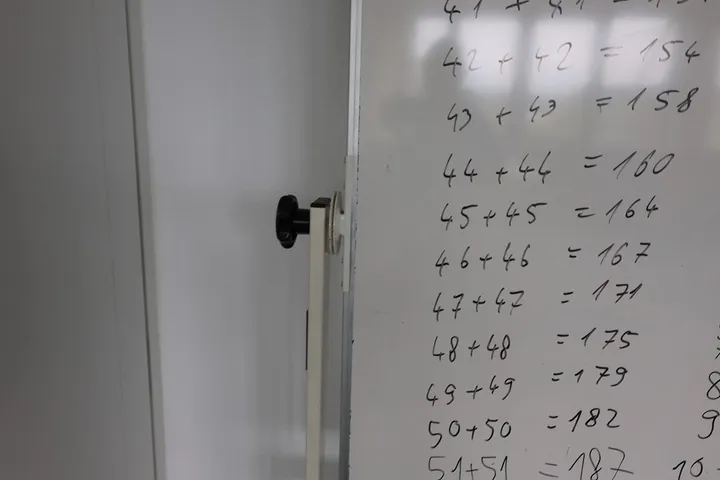 42 + 42 = 154
43 + 43 = 158
44 + 44 = 160
45+45 = 164
46+46 = 167
47+47 = 171
48+48 = 175
49+49 = 179
50+50 = 182
51+51 = 187 10